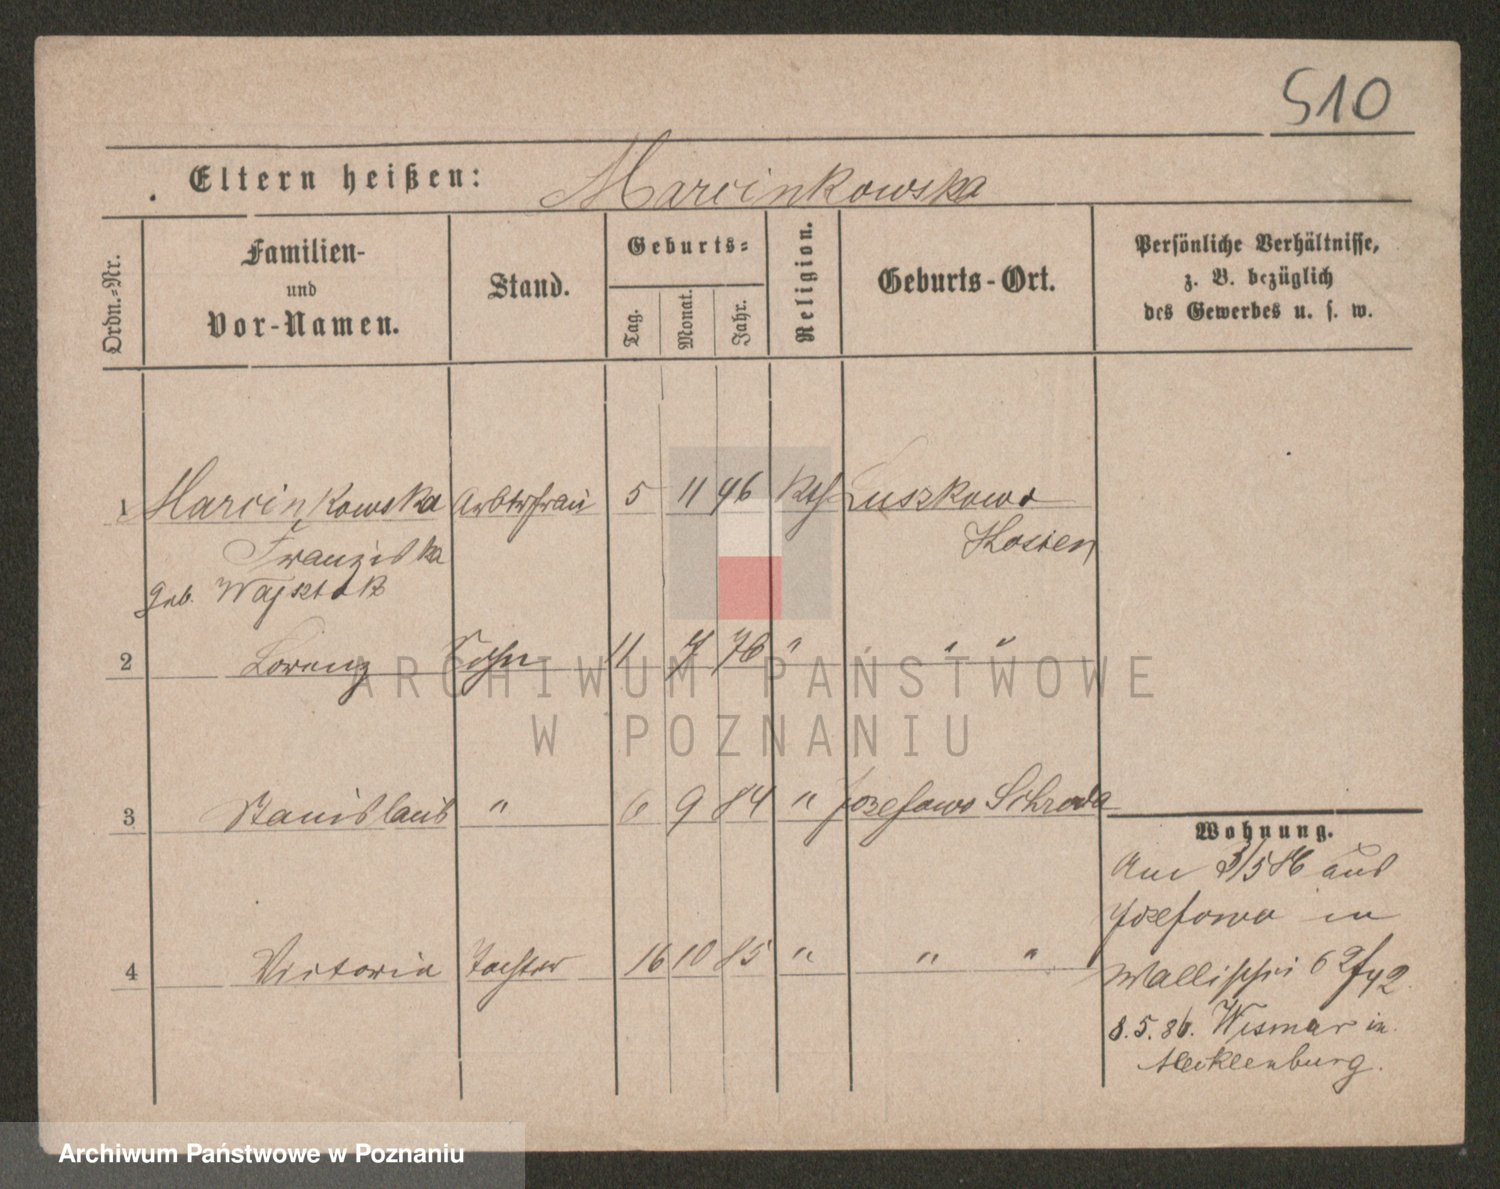 510
Eltern heißen: Marcinkowska
Ordn.-Nr.
Familien-
und
Vor-Namen.
Stand.
Geburts-
Tag.
Monat.
Jahr.
Religion.
Geburts-Ort.
Persönliche Verhältnisse,
z. B. bezüglich
des Gewerbes u. s. w.
1 Marcinkowska Arbtrfrau 5 11 46 Kth Luszkowo
Franziska Kosten
geb.
2 Lorenz Sohn 11 7 76 " " "
3 Stanislaus " 6 9 84 " Jozefowo Schroda
4 Victoria Tochter 16 10 85 " " "
Wohnung.
Am 3/5 86 aus
Jozefowo in
Wallischei 62
8.5.86. Wismar in
Mecklenburg.
ARCHIWUM PAŃSTWOWE
W POZNANIU
Archiwum Państwowe w Poznaniu